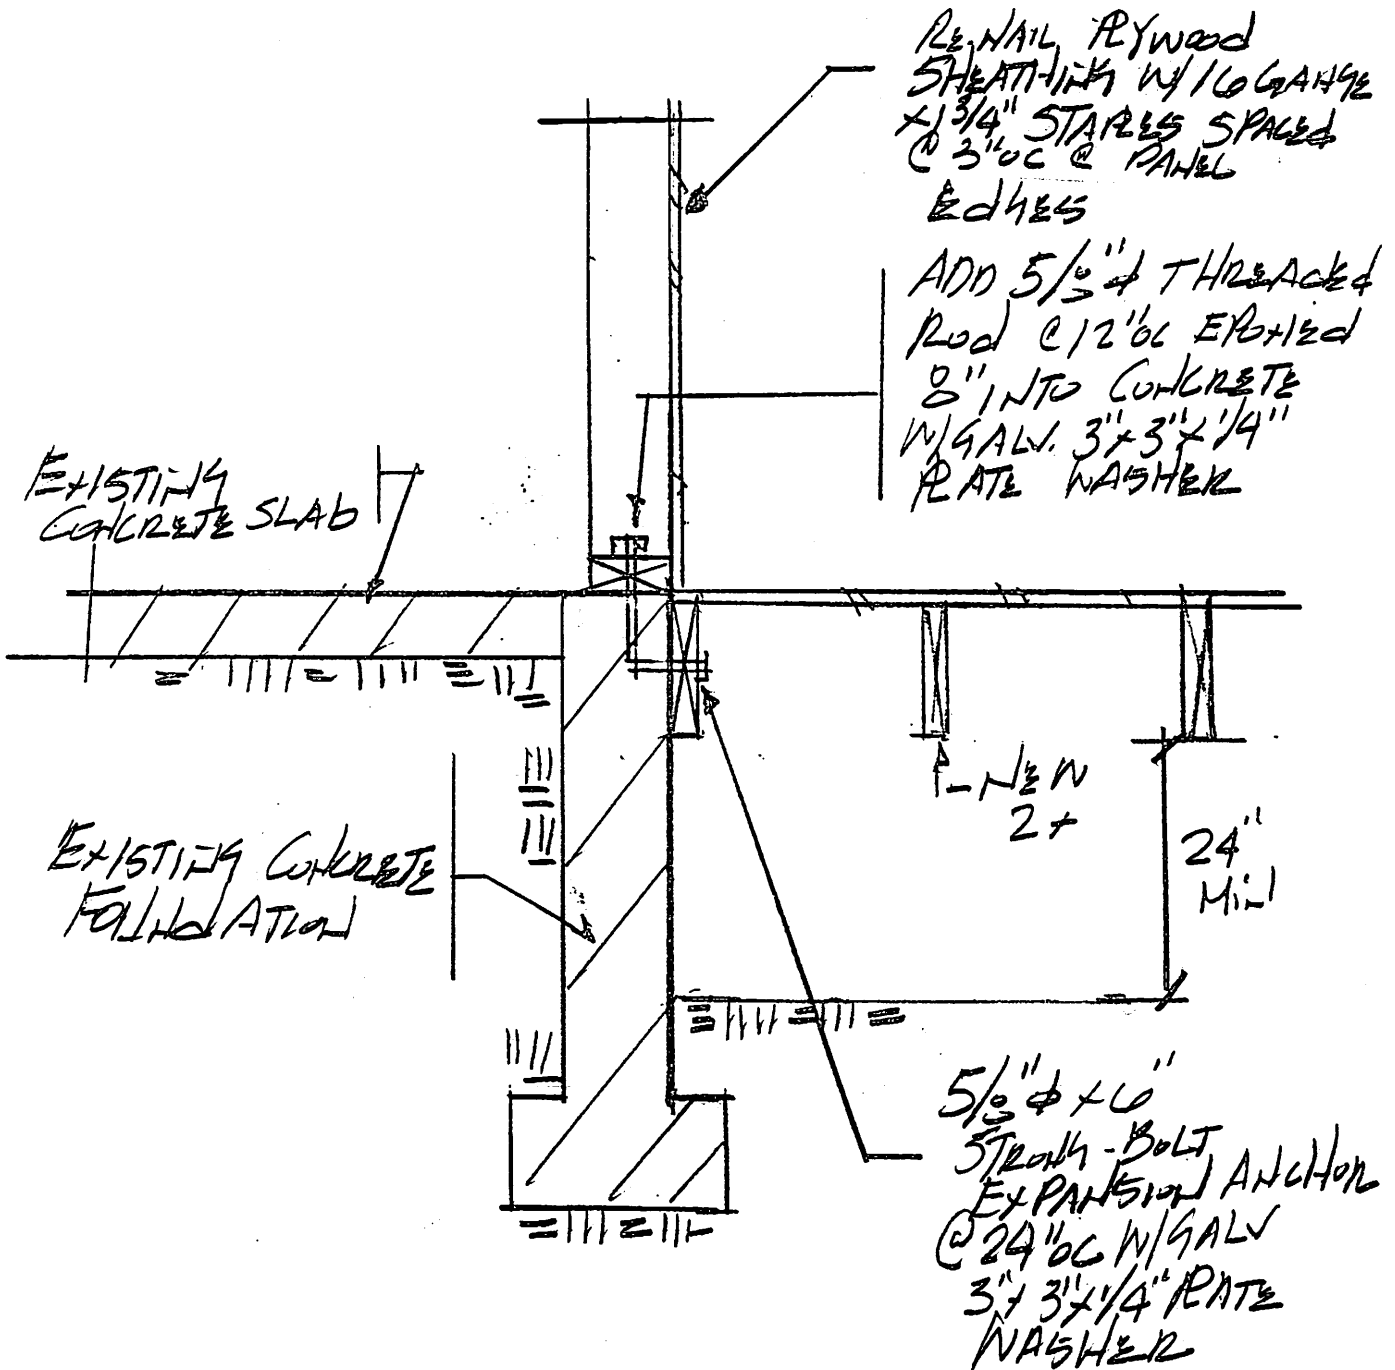 RE-NAIL PLYWOOD
SHEATHING W/16 GAUGE
x 1 3/4" STAPLES SPACED
@ 3" OC @ PANEL
EDGES
ADD 5/8"ϕ THREADED
ROD @ 12" OC EPOXIED
8" INTO CONCRETE
W/GALV. 3" x 3" x 1/4"
PLATE WASHER
EXISTING
CONCRETE SLAB
- NEW
2x
24"
MIN
EXISTING CONCRETE
FOUNDATION
5/8"ϕ x 6"
STRONG-BOLT
EXPANSION ANCHOR
@ 24" OC W/GALV
3" x 3" x 1/4" PLATE
WASHER